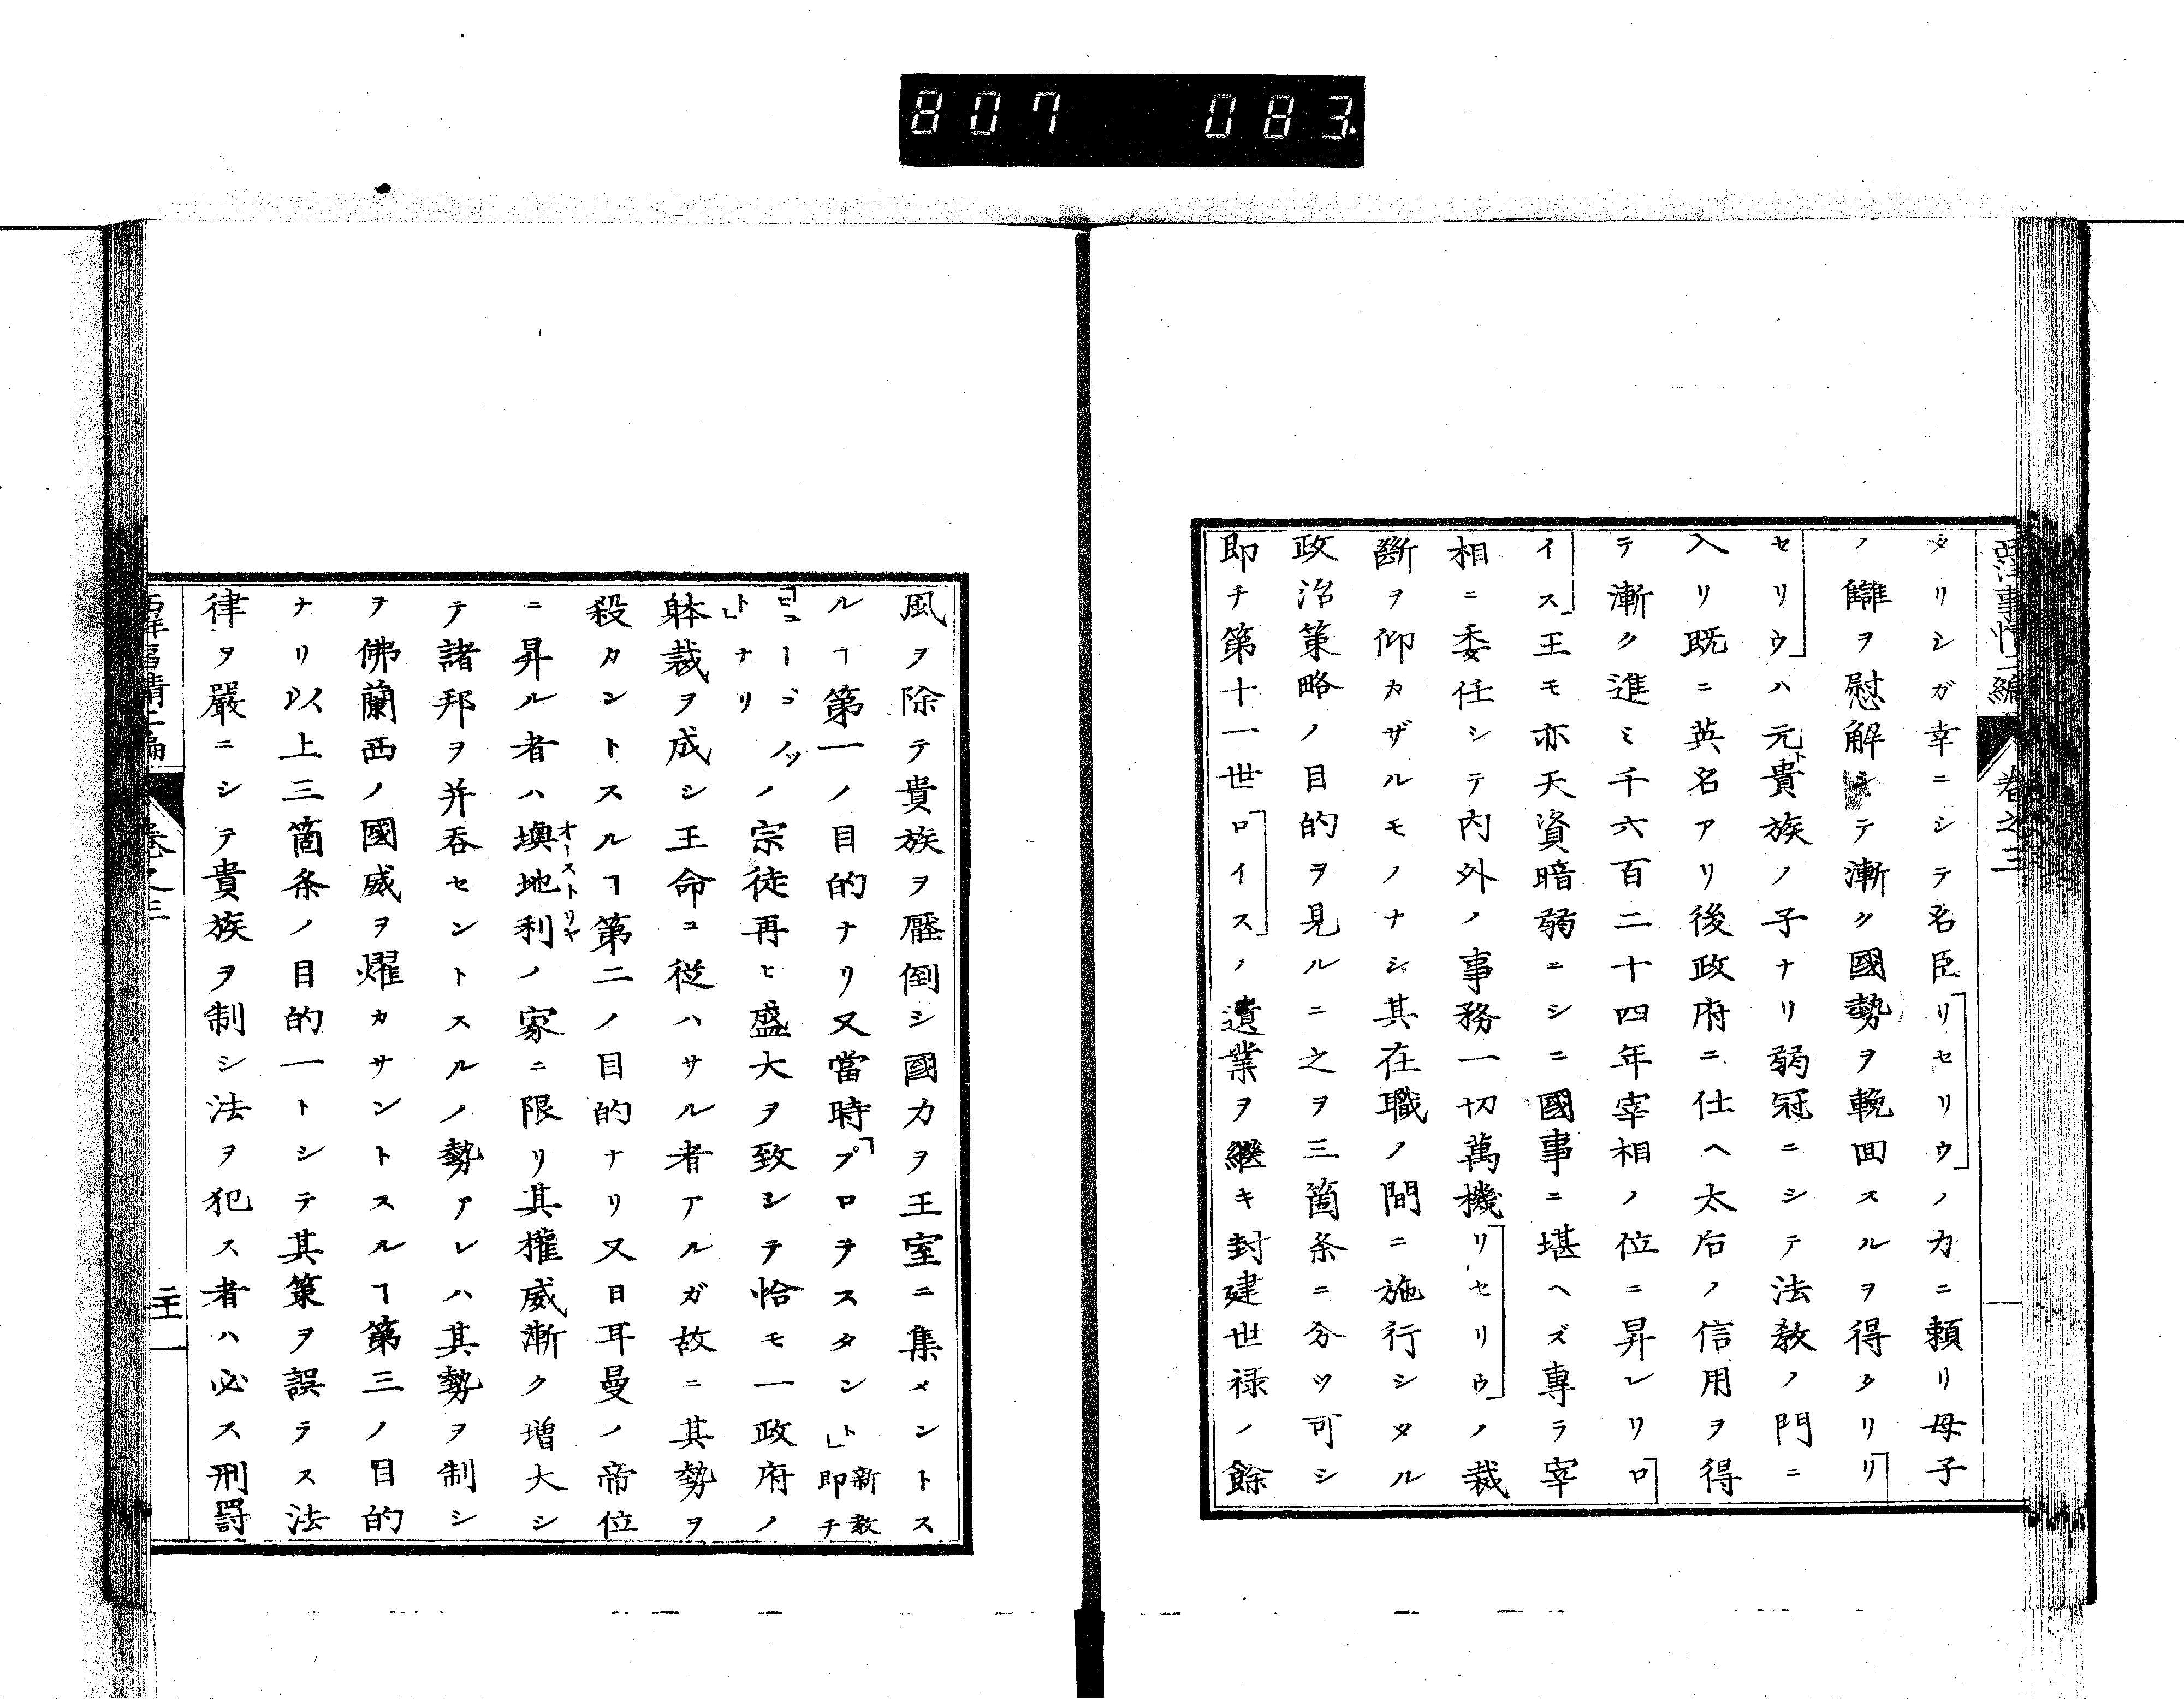 807 083.
タリシガ幸ニシテ名臣「リセリウ」ノカニ頼リ母子
ノ讎ヲ慰解シテ漸ク國勢ヲ輓回スルヲ得タリ「リ
セリウ」ハ元ト貴族ノ子ナリ弱冠ニシテ法教ノ門ニ
入リ既ニ英名アリ後政府ニ仕ヘ太后ノ信用ヲ得
テ漸ク進ミ千六百二十四年宰相ノ位ニ昇レリ「ロ
イス」王モ亦天資暗弱ニシニ國事ニ堪ヘズ專ラ宰
相ニ委任シテ内外ノ事務一切萬機「リセリウ」ノ裁
斷ヲ仰カザルモノナシ其在職ノ間ニ施行シタル
政治策略ノ目的ヲ見ルニ之ヲ三箇条ニ分ツ可シ
即チ第十一世「ロイス」ノ遺業ヲ継キ封建世禄ノ餘
風ヲ除テ貴族ヲ壓倒シ國力ヲ王室ニ集メントス
ルヿ第一ノ目的ナリ又當時「プロヲスタント」新教即チ
「ヒユーゴノットナリ」ノ宗徒再ヒ盛大ヲ致シテ恰モ一政府ノ
躰裁ヲ成シ王命ニ從ハサル者アルガ故ニ其勢ヲ
殺カントスルヿ第二ノ目的ナリ又日耳曼ノ帝位
ニ昇ル者ハ墺地利ノ家ニ限リ其權威漸ク増大シ
オーストリヤ
テ諸邦ヲ并吞セントスルノ勢アレハ其勢ヲ制シ
ヲ佛蘭西ノ國威ヲ燿カサントスルヿ第三ノ目的
ナリ以上三箇条ノ目的一トシテ其策ヲ誤ラス法
律ヲ嚴ニシテ貴族ヲ制シ法ヲ犯ス者ハ必ス刑罰
卷之三